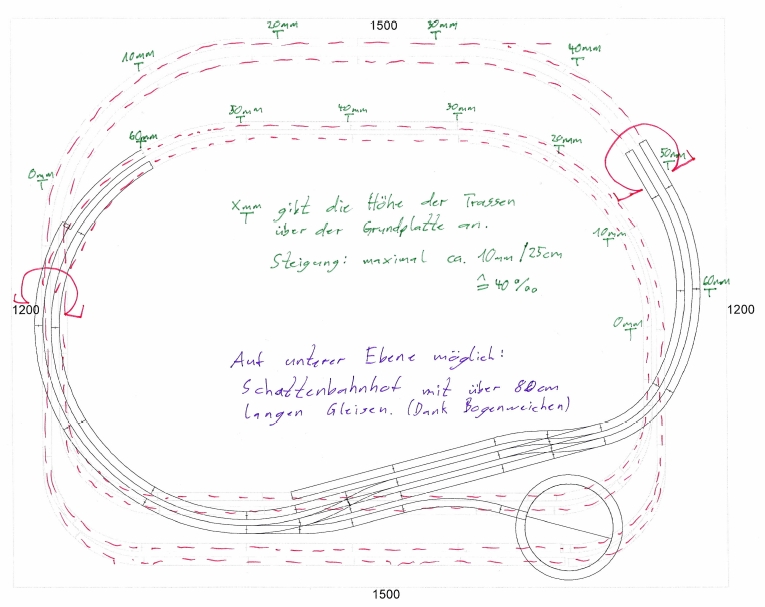 20mm
1500
30mm
10mm
40mm
50mm
40mm
30mm
60mm
20mm
50mm
0mm
x mm gibt die Höhe der Trassen
über der Grundplatte an.
10mm
Steigung: maximal ca. 10mm/25cm
≙ 40 ‰
60mm
1200
1200
0mm
Auf unterer Ebene möglich:
Schattenbahnhof mit über 80cm
langen Gleisen. (Dank Bogenweichen)
1500